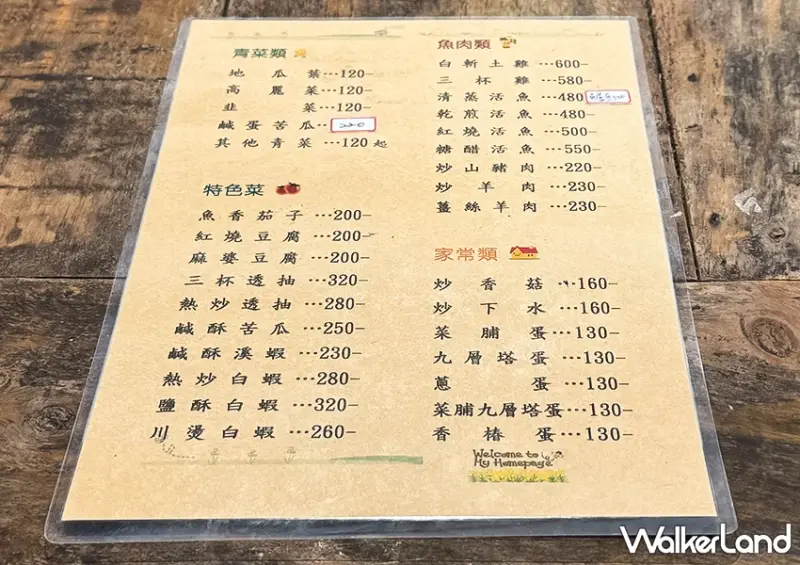 青菜類
地瓜葉…120-
高麗菜…120-
韭菜…120-
鹹蛋苦瓜…220
其他青菜…120起
特色菜
魚香茄子…200-
紅燒豆腐…200-
麻婆豆腐…200-
三杯透抽…320-
熱炒透抽…280-
鹹酥苦瓜…250-
鹹酥溪蝦…230-
熱炒白蝦…280-
鹽酥白蝦…320-
川燙白蝦…260-
魚肉類
白斬土雞…600-
三杯雞…580-
清蒸活魚…480
乾煎活魚…480-
紅燒活魚…500-
糖醋活魚…550-
炒山豬肉…220-
炒羊肉…230-
薑絲羊肉…230-
家常類
炒香菇…160-
炒下水…160-
菜脯蛋…130-
九層塔蛋…130-
蔥蛋…130-
菜脯九層塔蛋…130-
香椿蛋…130-
Welcome to
My Homepage
WalkerLand